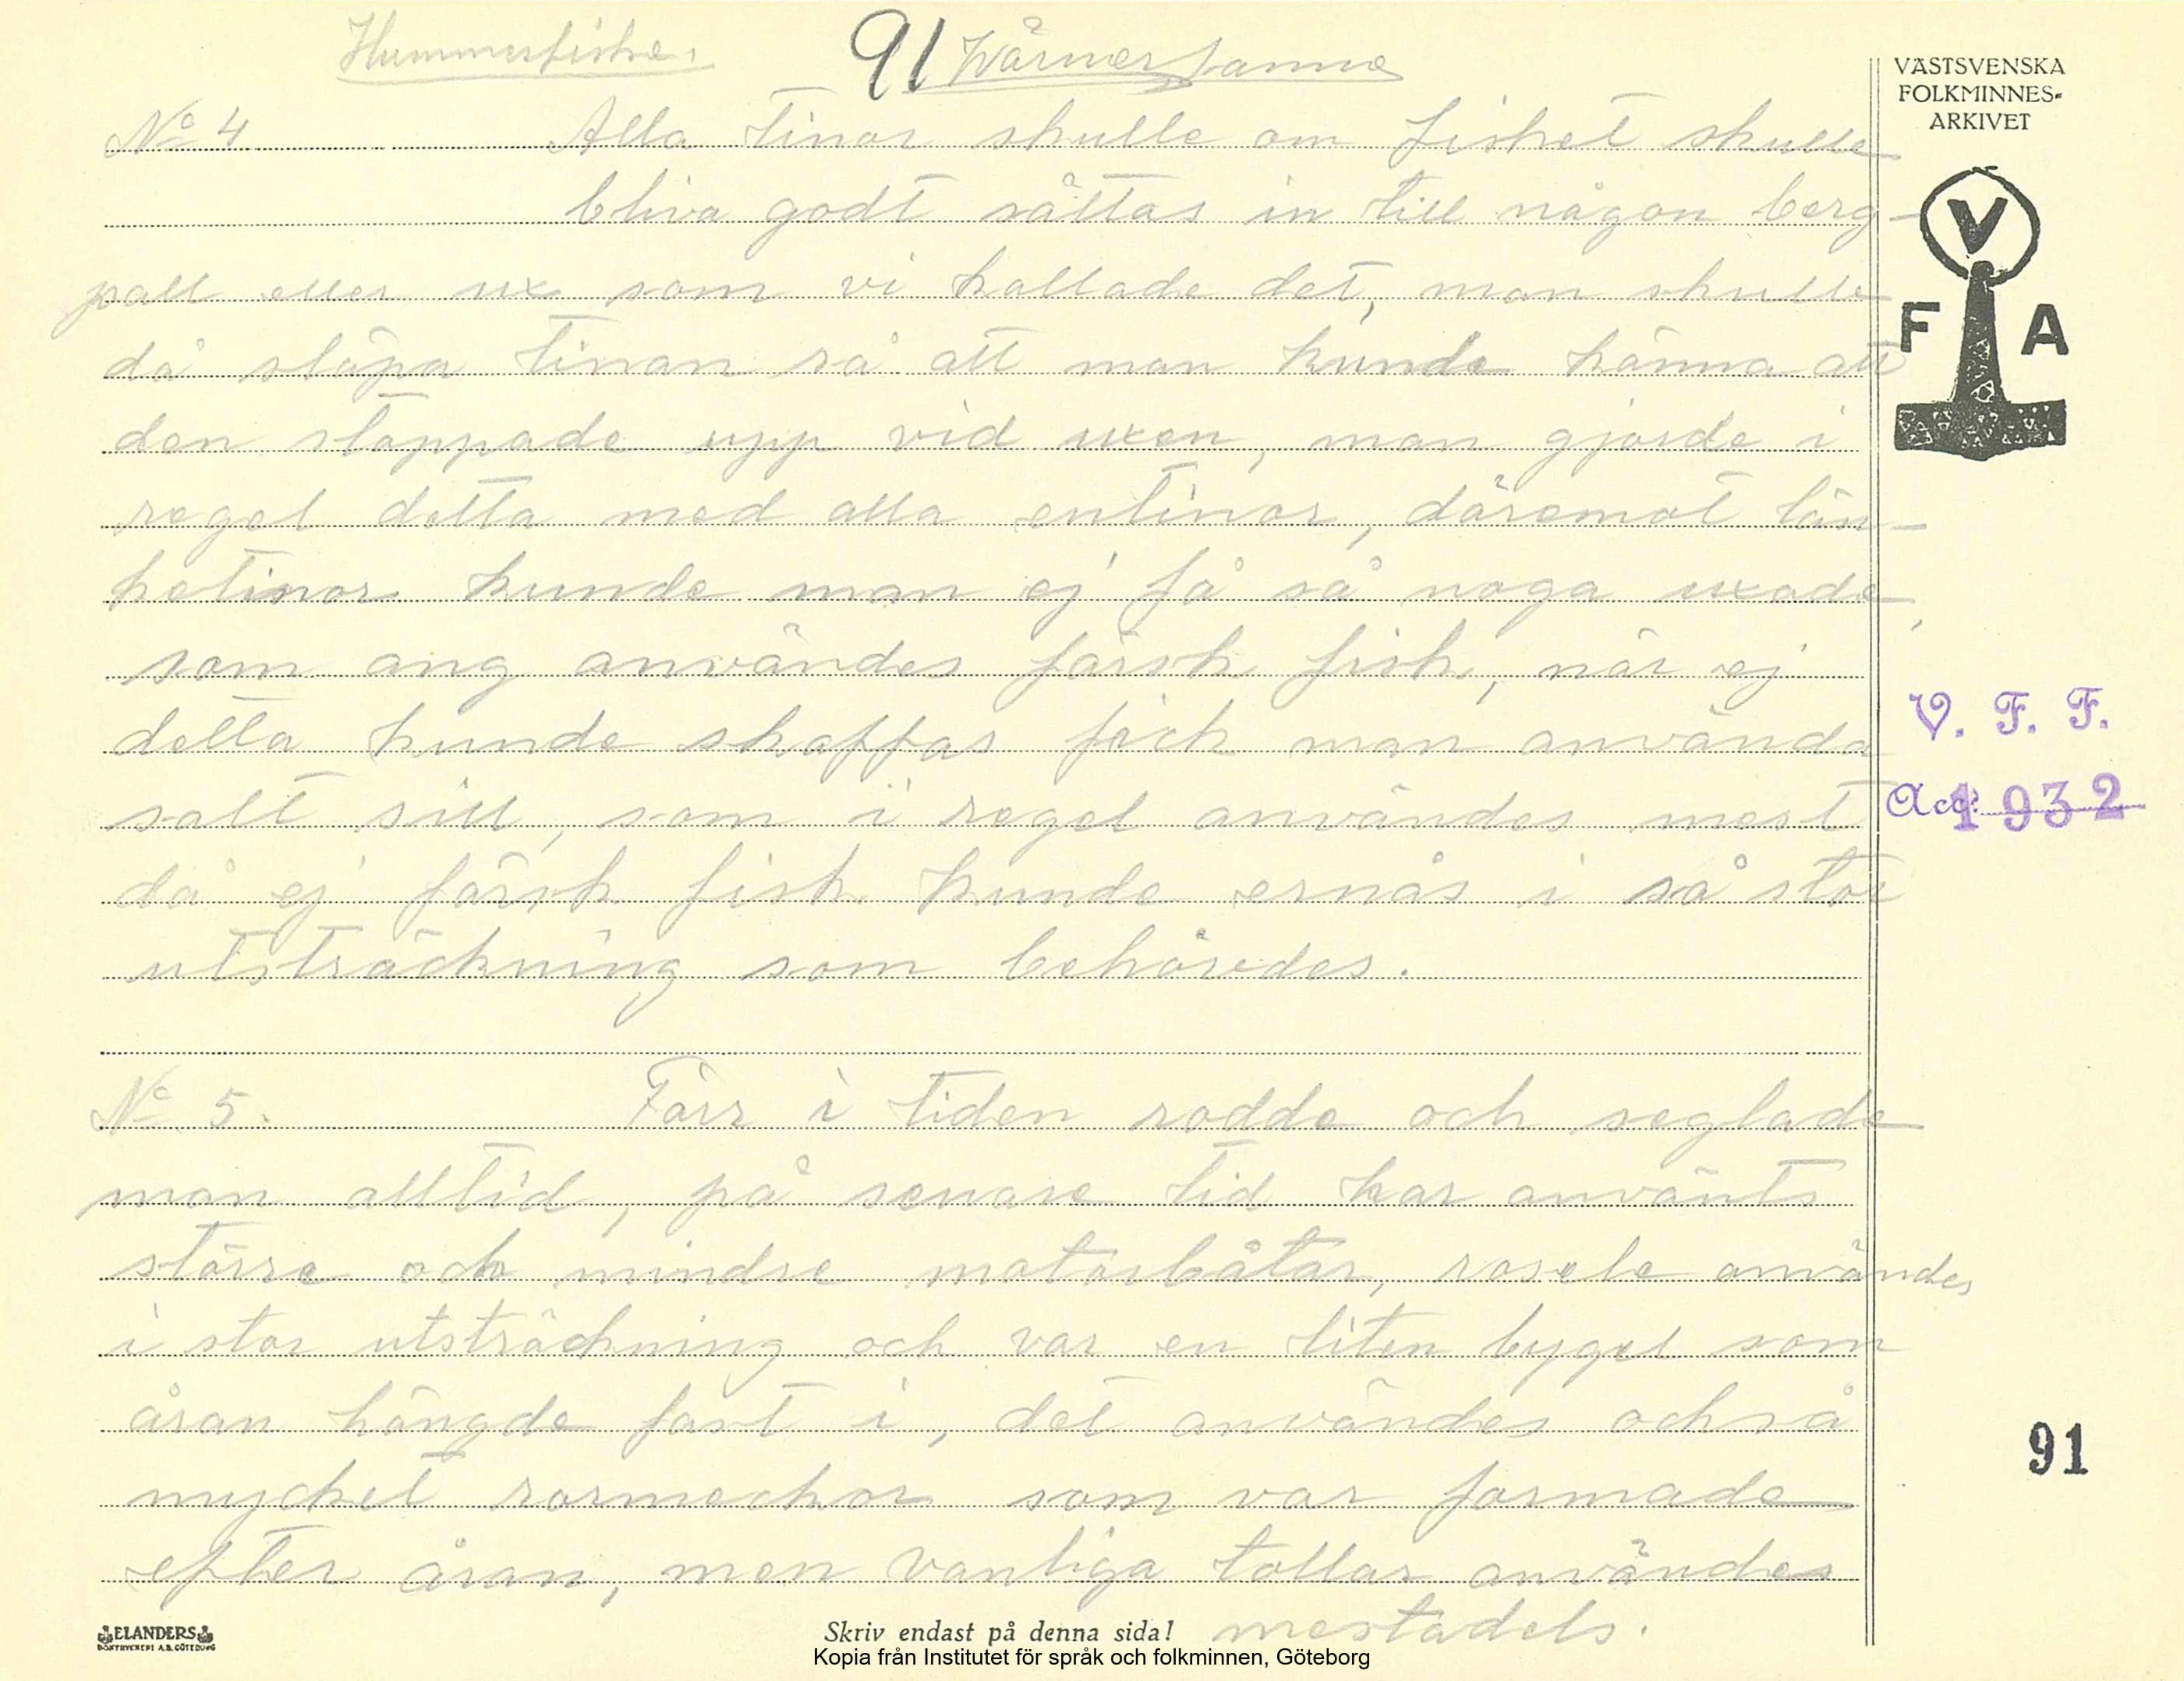 Hummerfiske. 91 Wärner Sanne
VÄSTSVENSKA
FOLKMINNES-
ARKIVET
V
F A
No 4 Alla tinor skulle om fisket skulle
bliva godt sättas in till någon berg-
pall eller ux som vi kallade det, man skulle
då släpa tinan så att man kunde känna att
den stoppade upp vid uxen, man gjorde i
regel detta med alla entinor, däremot län-
ketinor kunde man ej få så noga uxade,
som ang användes färsk fisk, när ej
detta kunde skaffas fick man använda
salt sill, som i regel användes mest
då ej färsk fisk kunde ernås i så stor
utsträckning som behövdes.
V. F. F.
Acc: 1932
No 5. Förr i tiden rodde och seglade
man alltid, på senare tid har använts
större och mindre motorbåtar, rosele användes
i stor utsträckning och var en liten bygel som
åran hängde fast i, det användes också
mycket rormeckor som var formade
efter åran, men vanliga tollar användes
mestadels.
91
ELANDERS
BOKTRYCKERI A.B. GÖTEBORG
Skriv endast på denna sida!
Kopia från Institutet för språk och folkminnen, Göteborg